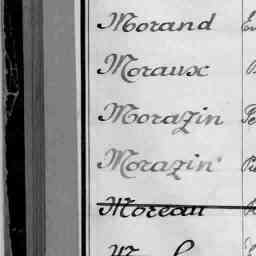 Morand
Moraux
Morazin
Morazin
Moreau